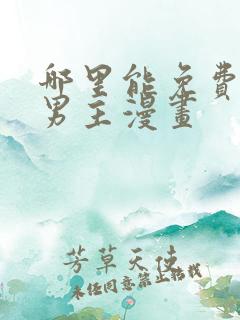 哪里能免費
男主漫畫
芳草天使
未经同意禁止转载